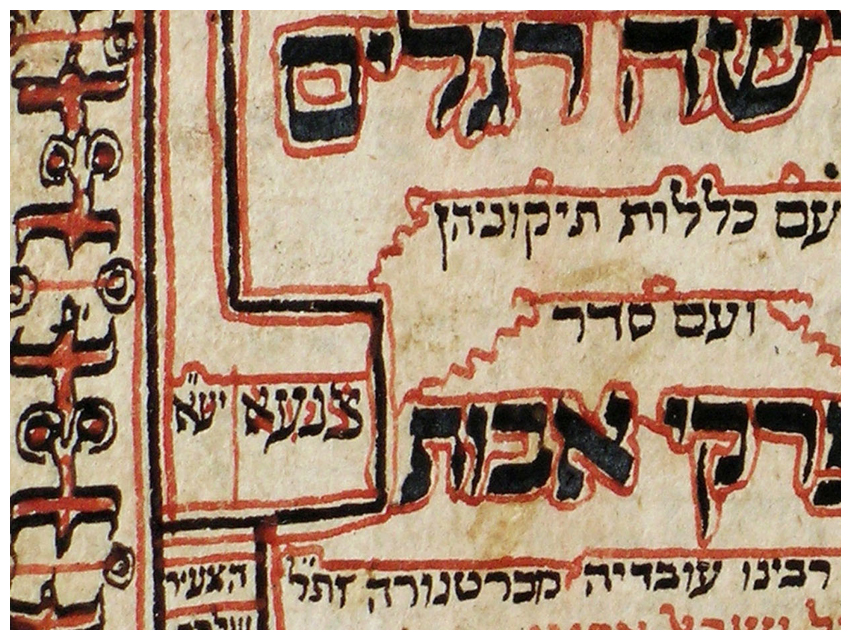 שה רגלים
עם כללות תיקוניהן
ועם סדר
פרקי אבות
צנעא יע״א
רבינו עובדיה מברטנורה זתל
הצעיר